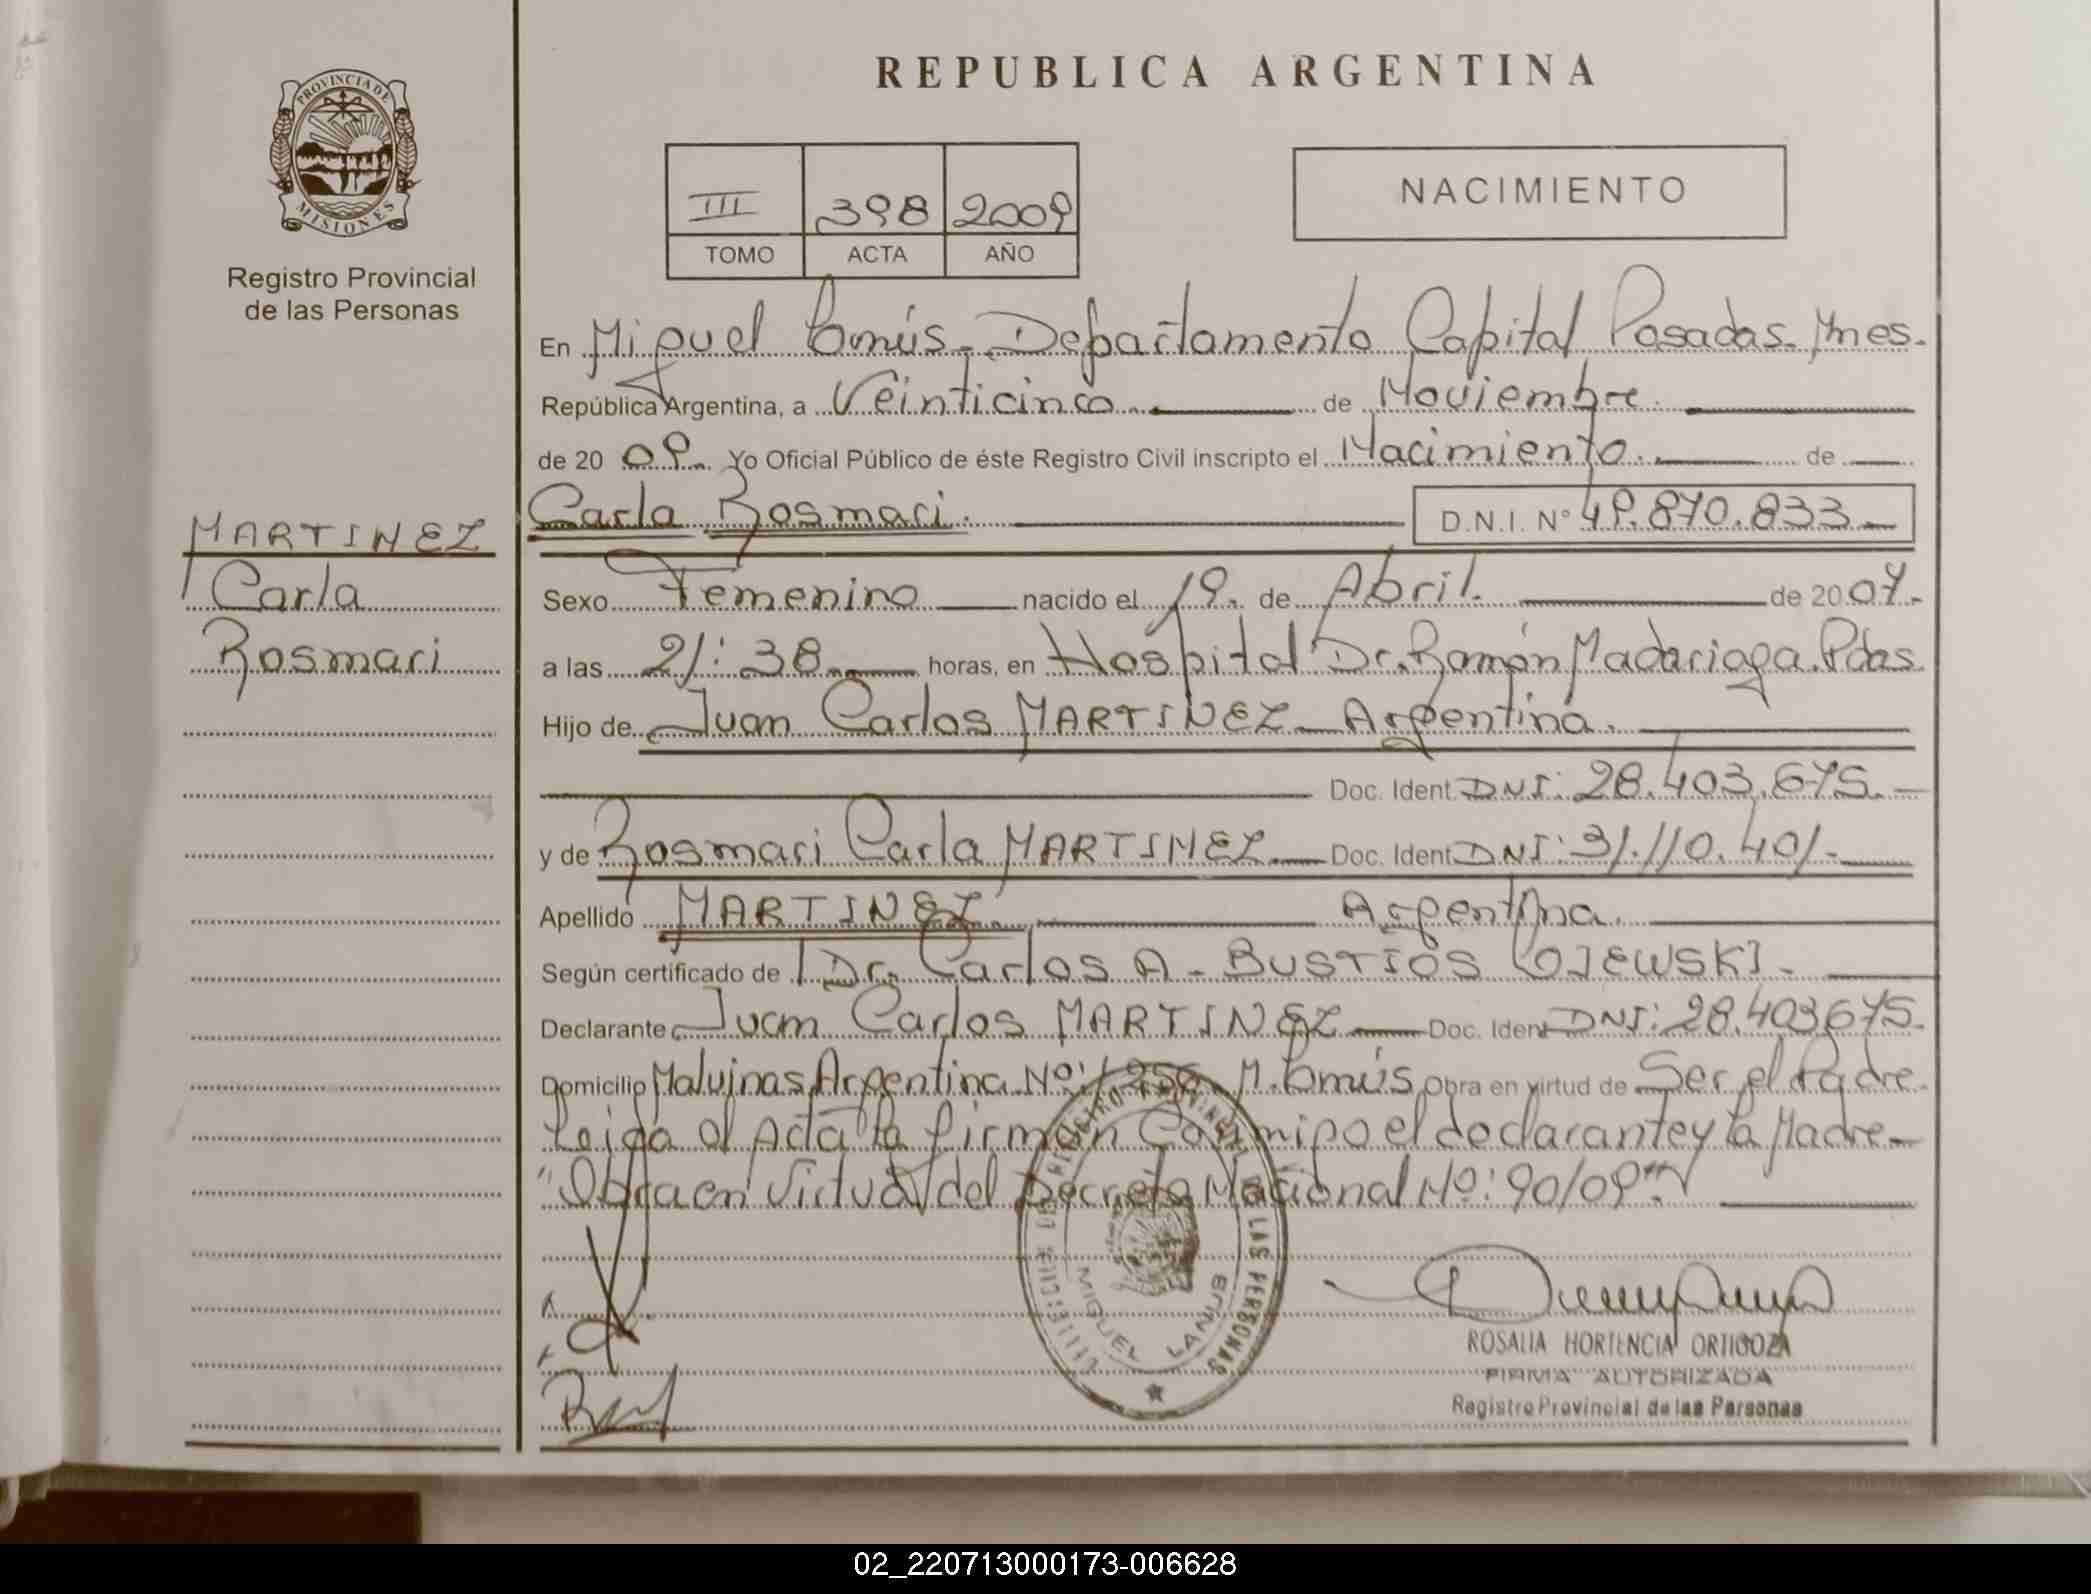 REPUBLICA ARGENTINA
PROVINCIA DE
MISIONES
Registro Provincial
de las Personas
III 398 2009
TOMO ACTA AÑO
NACIMIENTO
En Miguel Lanús - Departamento Capital Posadas. Mnes.
República Argentina, a Veinticinco de Noviembre
de 2009. Yo Oficial Público de éste Registro Civil inscripto el Nacimiento. de
Carla Rosmari. D.N.I. N° 49.870.833
MARTINEZ
Carla
Rosmari
Sexo Femenino nacido el 19. de Abril. de 2007.
a las 21:38 horas, en Hospital Dr. Ramón Madariaga. Pdas.
Hijo de Juan Carlos MARTINEZ - Argentina.
Doc. Ident. DNI: 28.403.675.
y de Rosmari Carla MARTINEZ Doc. Ident. DNI: 31.110.401.
Apellido MARTINEZ. Argentina.
Según certificado de Dr. Carlos A. BUSTIOS LOJEWSKI.
Declarante Juan Carlos MARTINEZ Doc. Ident. DNI: 28.403675.
Domicilio Malvinas Argentina Nº: 1256 M. Lanús Obra en virtud de Ser el Padre
Leida el Acta la firman Conmigo el declarante y la Madre
"Obra en Virtud del Decreto Nacional Nº: 90/09"
REGISTRO PROVINCIAL DE LAS PERSONAS
MIGUEL LANUS
ROSALIA HORTENCIA ORTIGOZA
FIRMA AUTORIZADA
Registro Provincial de las Personas
02_220713000173-006628